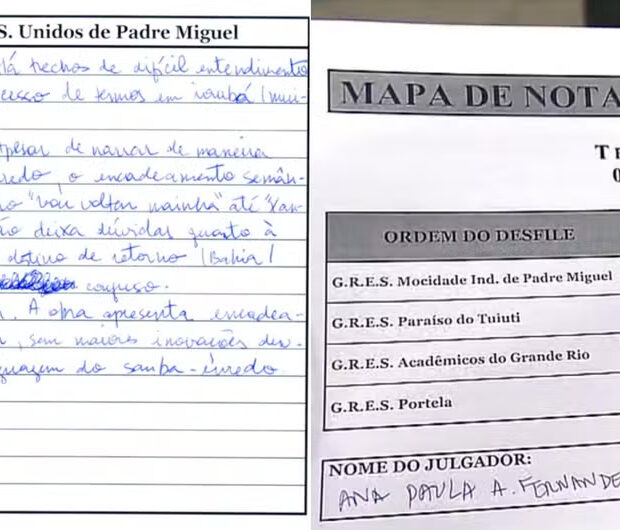 S. Unidos de Padre Miguel
Há trechos de difícil entendimento
cesso de termos em iorubá (mui-
Apesar de narrar de maneira
redo, o encadeamento semân-
o "vou voltar mainha" até "Xan-
ão deixa dúvidas quanto à
destino de retorno (Bahia)
confuso.
. A obra apresenta encadea-
, sem maiores inovações den-
guagem do samba-enredo
MAPA DE NOTA
T
0
ORDEM DO DESFILE
G.R.E.S. Mocidade Ind. de Padre Miguel
G.R.E.S. Paraíso do Tuiuti
G.R.E.S. Acadêmicos do Grande Rio
G.R.E.S. Portela
NOME DO JULGADOR:
ANA PAULA A. FERNANDE